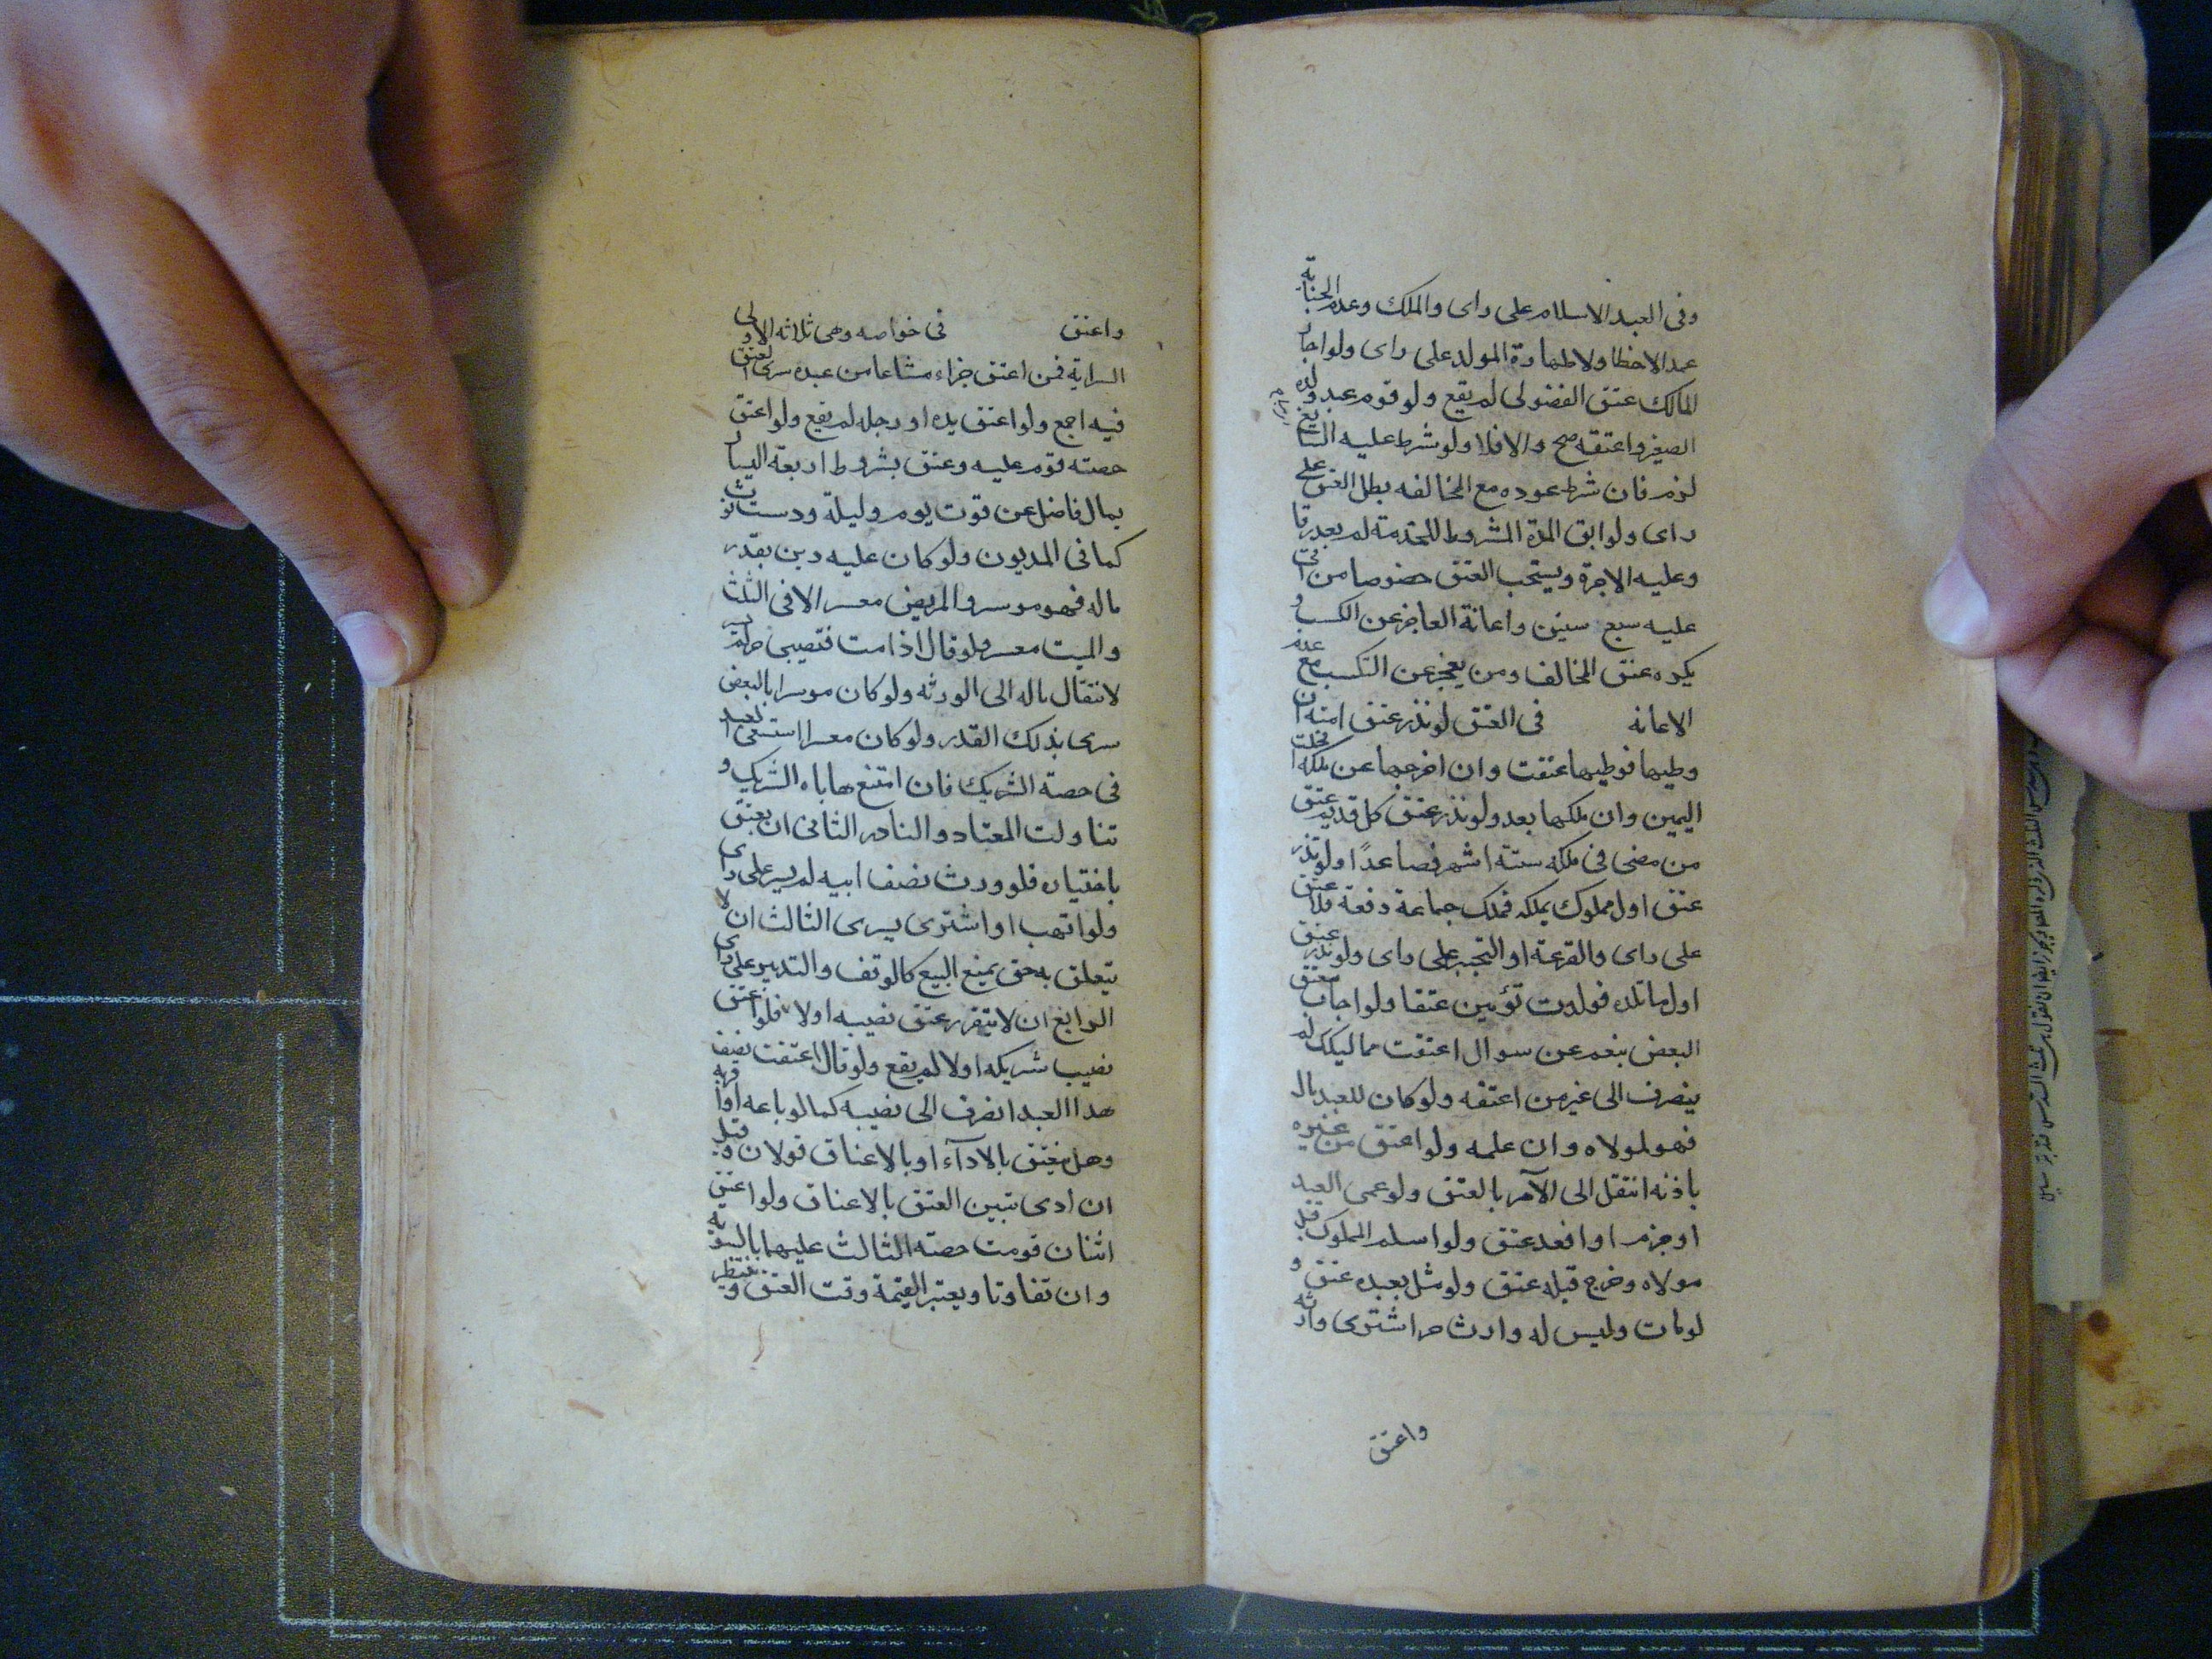 وفى العبد الاسلام على راى والملك وعدم الجناية
عمدا لاخطا ولا طهارة المولد على راى ولو اجاز
المالك عتق الفضولى لم يقع ولو قوم عبد ولده
الصغير واعتقه صح والا فلا ولو شرط عليه السايغ
لزم فان شرط عوده مع المخالفه بطل العتق على
راى ولو ابق المدة المشروط للخدمة لم يعد رقا
وعليه الاجرة ويستحب العتق خصوصا من اتى
عليه سبع سنين واعانة العاجز عن الكسب و
يكره عتق المخالف ومن يعجز عن التكسب مع عدم
الاعانه فى العتق لو نذر عتق امته ان
وطيها فوطيها عتقت وان اخرجها عن ملكه انحلت
اليمين وان ملكها بعد ولو نذر عتق كل قديم عتق
من مضى فى ملكه ستة اشهر فصاعدًا ولو نذر
عتق اول مملوك يملكه فملك جماعة دفعة فلا عتق
على راى والقرعة او التخير على راى ولو نذر عتق
اول ما تلده فولدت تؤمين عتقا ولو اجاب معتق
البعض بنعم عن سوال اعتقت مماليكك لم
ينصرف الى غير من اعتقه ولو كان للعبد مال
فهو لمولاه وان علمه ولو اعتق من غيره
باذنه انتقل الى الآمر بالعتق ولو عمى العبد
او جزم او اقعد عتق ولو اسلم المملوك قبل
مولاه وخرج قبله عتق ولو مثل بعبده عتق و
لو مات وليس له وارث حر اشترى وارثه
واعتق
واعتق فى خواصه وهى ثلاثه الاولى
السراية فمن اعتق جزاء مشاعا من عبده سرى العتق
فيه اجمع ولو اعتق يده او رجله لم يقع ولو اعتق
حصته قوم عليه وعتق بشروط اربعة اليسار
بمال فاضل عن قوت يوم وليلة ودست ثوب
كما فى المديون ولو كان عليه دين بقدر
ماله فهو موسر والمريض معسر الا فى الثلث
والميت معسر ولو قال اذا مت فنصيبى حر لم يسر
لانتقال ماله الى الورثه ولو كان موسرا بالبعض
سرى بذلك القدر ولو كان معسرا استسعى العبد
فى حصة الشريك فان امتنع هاباه الشريك و
تناولت المعتاد والنادر الثانى ان يعتق
باختياره فلو ورث نصف ابيه لم يسر على راى
ولو اتهب او اشترى يسرى الثالث ان لا
يتعلق به حق يمنع البيع كالوقف والتدبير على راى
الرابع ان لا يتقرر عتق نصيبه اولا فلو اعتق
نصيب شريكه اولا لم يقع ولو قال اعتقت نصف
هذا العبد انصرف الى نصيبه كما لو باعه او اقر به
وهل يعتق بالادآء او بالاعتاق قولان وقيل
ان ادى تبين العتق بالاعتاق ولو اعتق
اثنان قومت حصة الثالث عليهما بالسوية
وان تفاوتا ويعتبر القيمة وقت العتق وينتظر